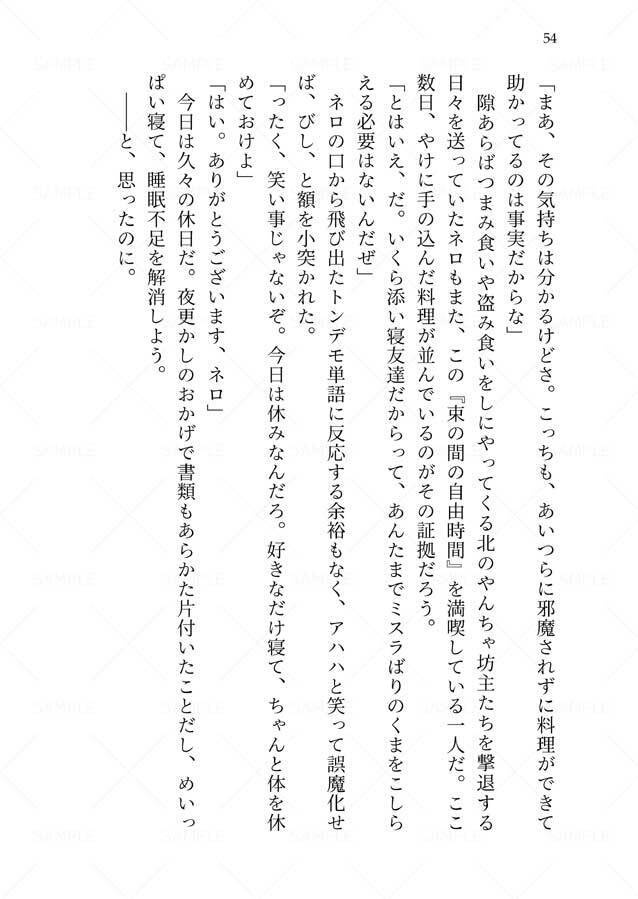 54
「まあ、その気持ちは分かるけどさ。こっちも、あいつらに邪魔されずに料理ができて
助かってるのは事実だからな」
隙あらばつまみ食いや盗み食いをしにやってくる北のやんちゃ坊主たちを撃退する
日々を送っていたネロもまた、この『束の間の自由時間』を満喫している一人だ。ここ
数日、やけに手の込んだ料理が並んでいるのがその証拠だろう。
「とはいえ、だ。いくら添い寝友達だからって、あんたまでミスラばりのくまをこしら
える必要はないんだぜ」
ネロの口から飛び出たトンデモ単語に反応する余裕もなく、アハハと笑って誤魔化せ
ば、びし、と額を小突かれた。
「ったく、笑い事じゃないぞ。今日は休みなんだろ。好きなだけ寝て、ちゃんと体を休
めておけよ」
「はい。ありがとうございます、ネロ」
今日は久々の休日だ。夜更かしのおかげで書類もあらかた片付いたことだし、めいっ
ぱい寝て、睡眠不足を解消しよう。
――と、思ったのに。
SAMPLE